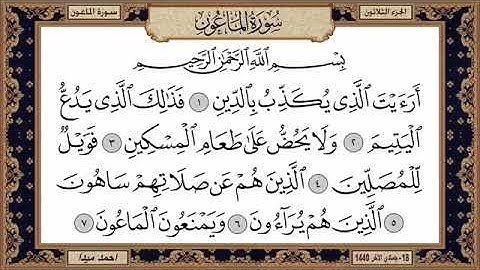 الجزء الثلاثون
سورة الماعون
سورة الماعون
بسم الله الرحمن الرحيم
أَرَءَيْتَ الَّذِي يُكَذِّبُ بِالدِّينِ ١ فَذَٰلِكَ الَّذِي يَدُعُّ
الْيَتِيمَ ٢ وَلَا يَحُضُّ عَلَىٰ طَعَامِ الْمِسْكِينِ ٣ فَوَيْلٌ
لِلْمُصَلِّينَ ٤ الَّذِينَ هُمْ عَن صَلَاتِهِمْ سَاهُونَ
٥ الَّذِينَ هُمْ يُرَآءُونَ ٦ وَيَمْنَعُونَ الْمَاعُونَ ٧
18 - جمادى الآخر 1440